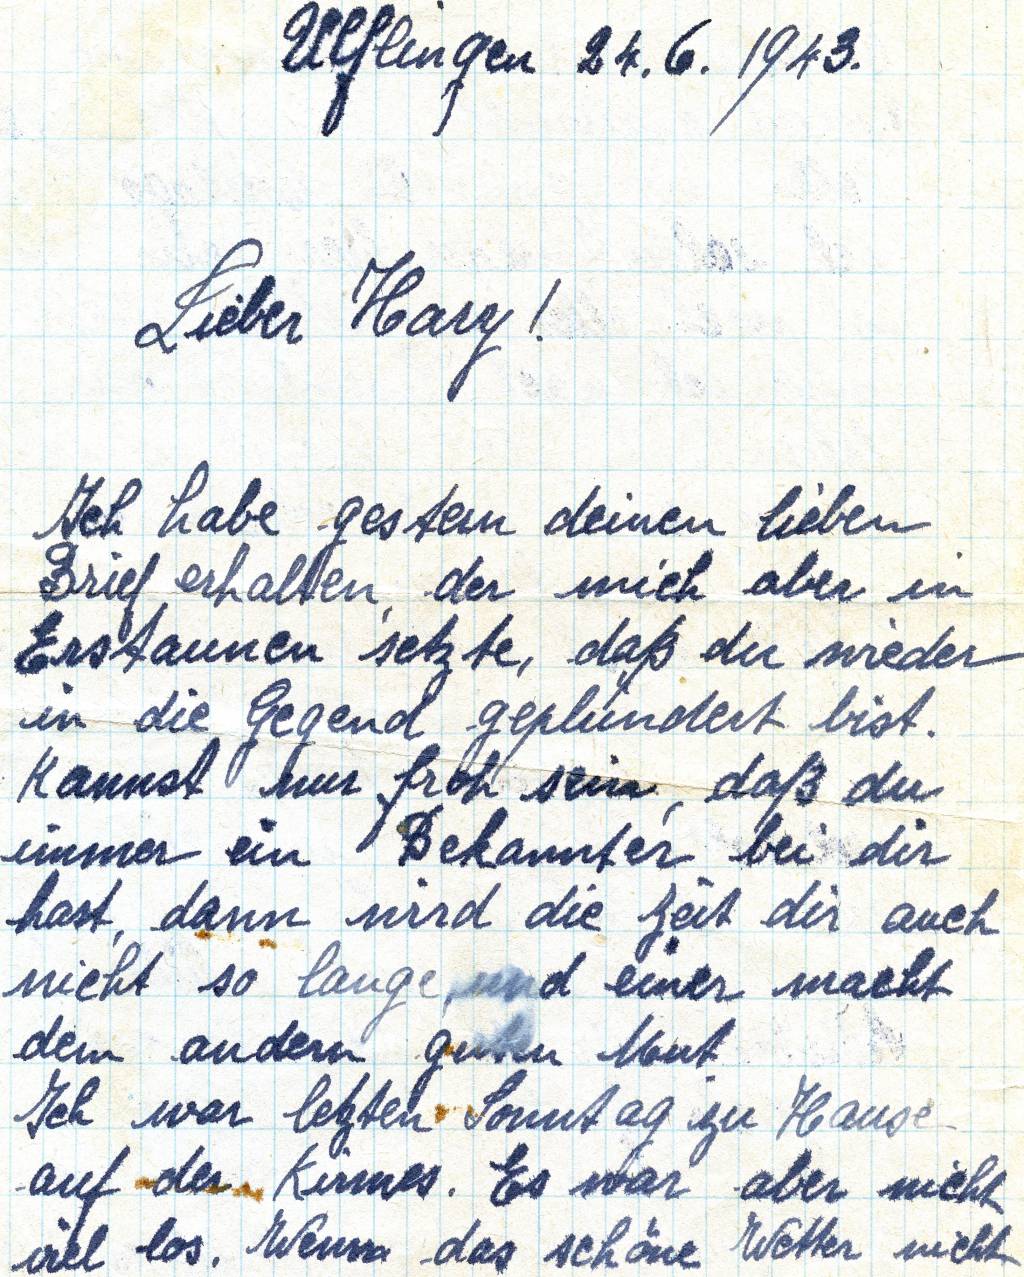 Ulflingen 24.6.1943.
Lieber Hary!
Ich habe gestern deinen lieben
Brief erhalten, der mich aber in
Erstaunen setzte, daß du wieder
in die Gegend geplündert bist.
Kannst nur froh sein, daß du
immer ein Bekannter bei dir
hast, dann wird die Zeit dir auch
nicht so lange, und einer macht
dem andern guten Mut.
Ich war letzten Sonntag zu Hause
auf der Kirmes. Es war aber nicht
viel los. Wenn das schöne Wetter nicht